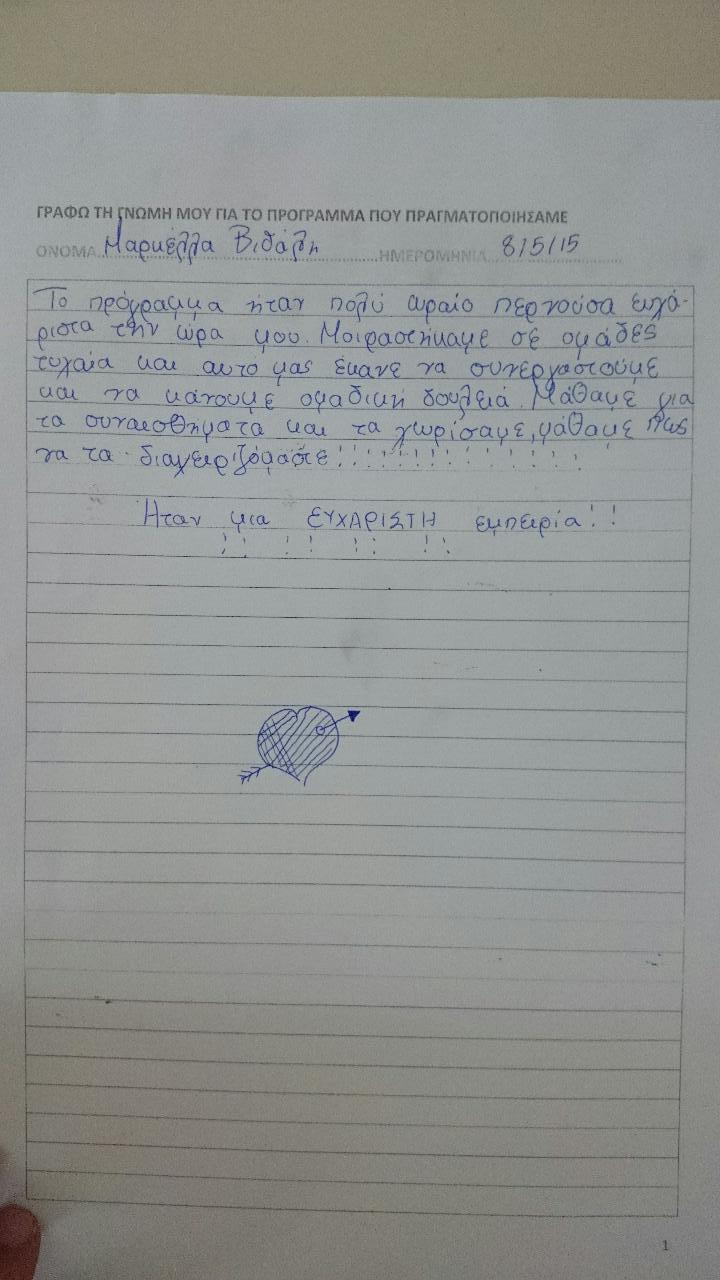 ΓΡΑΦΩ ΤΗ ΓΝΩΜΗ ΜΟΥ ΓΙΑ ΤΟ ΠΡΟΓΡΑΜΜΑ ΠΟΥ ΠΡΑΓΜΑΤΟΠΟΙΗΣΑΜΕ
ΟΝΟΜΑ Μαρκέλλα Βιθάλη ΗΜΕΡΟΜΗΝΙΑ 8/5/15
Το πρόγραμμα ήταν πολύ ωραίο περνούσα ευχά-
ριστα την ώρα μου. Μοιραστήκαμε σε ομάδες
τυχαία και αυτό μας έκανε να συνεργαστούμε
και να κάνουμε ομαδική δουλειά. Μάθαμε για
τα συναισθήματα και τα χωρίσαμε, μάθαμε πως
να τα διαχειριζόμαστε!!!!!!!!!!!!!!
Ήταν μια ΕΥΧΑΡΙΣΤΗ εμπειρία!!
!! !! !! !!
1